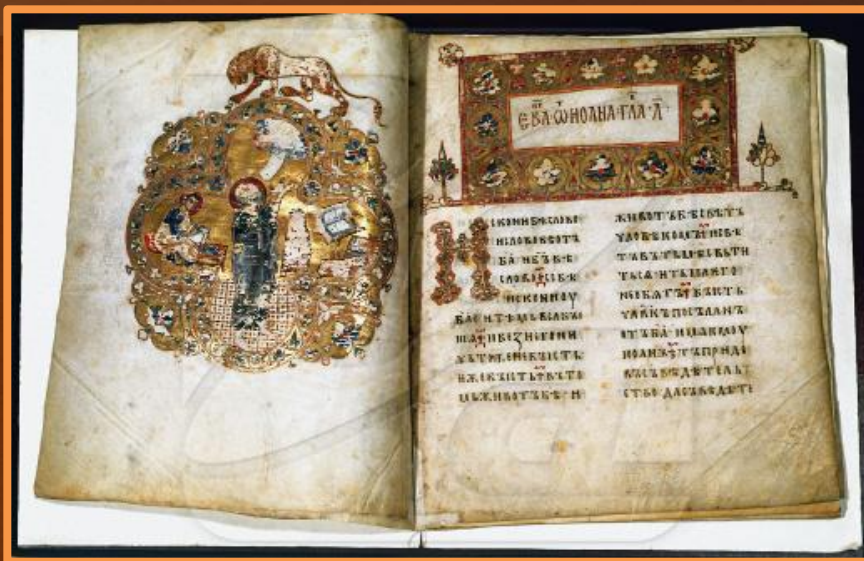 ЕВА ѾИОАНА ГЛА А
ИСКОНИ БѢ СЛОВО
И СЛОВО БѢ ОТЪ
БА И БЪ БѢ
СЛОВО СЕ БѢ
ИСКОНИ ОУ
БА И ТѢМЬ ВСѦ БЫ
ШѦ И БЕЗ НЕГО НИ
ЧЬТОЖЕ НЕ БЫСТЬ
ЕЖЕ БЫСТЬ ВЪ ТО
МЬ ЖИВОТЪ БѢ И
ЖИВОТЪ БѢ СВѢТЪ
ЧЛОВѢКОМЪ И СВѢ
ТЪ ВЪ ТЬМѢ СВЬТИ
ТЬ СѦ И ТЬМА ѤГО
НЕ ОБѦТЪ БЫСТЬ
ЧЛВКЪ ПОСЪЛАНЪ
ОТЪ БА ИМѦ ѤМОУ
ИОАНЪ ТЪ ПРИДЕ
ВЪ СЪВѢДѢТЕЛЬ
СТВО ДА СЪВѢДѢТЕ